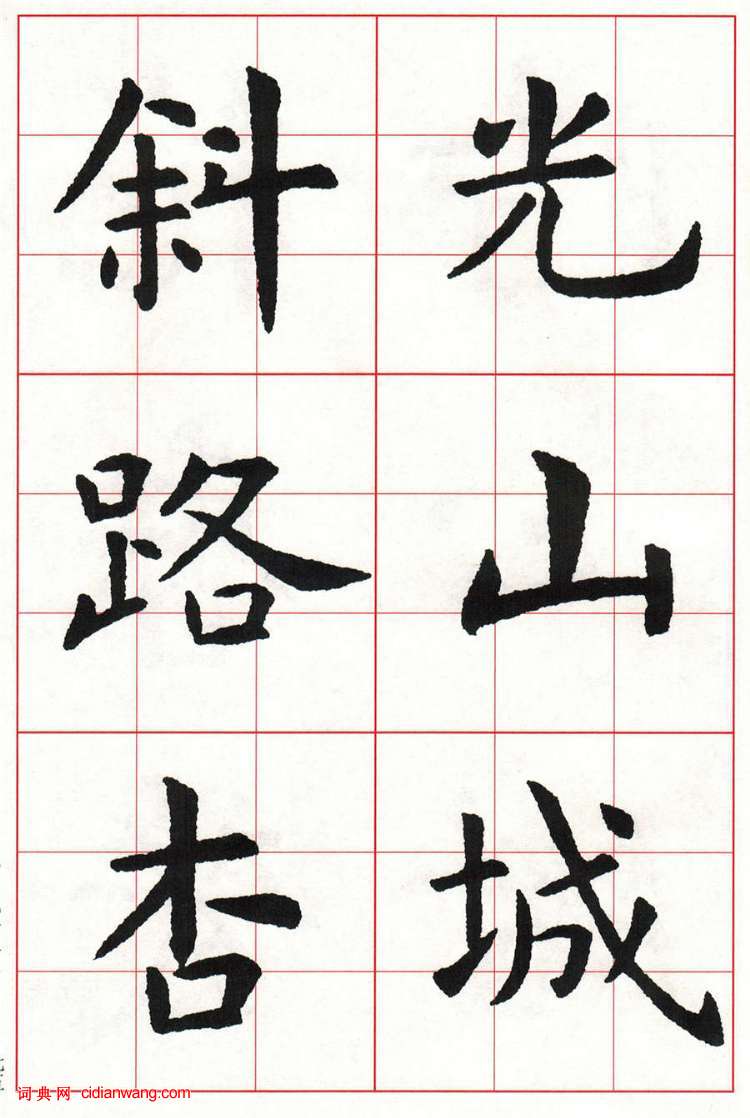 光山城
斜路杏
词典网-cidianwang.com